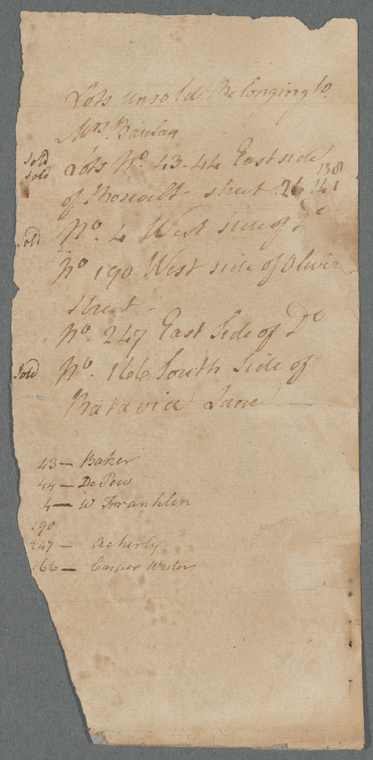 Lots unsold Belonging to
Mrs.
sold
sold Lots No. 43-44 East side 138
of Rosevelt street 26 141
sold No. 4 West side of Do
No 190 West side of Oliver
street
No 247 East Side of Do
sold No. 166 South Side of
Batavia Lane
43 — Baker
44 — De Pew
4 — W Franklin
190
247 — Acherly
166 — Casper